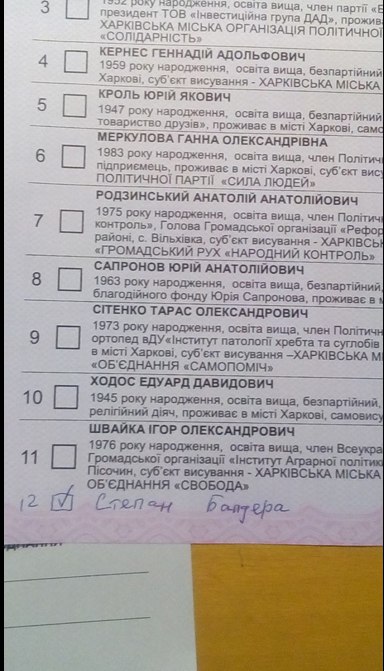 3
1952 року народження, освіта вища, член партії
президент ТОВ «Інвестиційна група ДАД»,
ХАРКІВСЬКА МІСЬКА ОРГАНІЗАЦІЯ ПОЛІТИЧНОЇ
«СОЛІДАРНІСТЬ»
4
КЕРНЕС ГЕННАДІЙ АДОЛЬФОВИЧ
1959 року народження, освіта вища, безпартійний
Харкові, суб'єкт висування - ХАРКІВСЬКА МІСЬКА
5
КРОЛЬ ЮРІЙ ЯКОВИЧ
1947 року народження, освіта вища, безпартійний
товариство друзів», проживає в місті Харкові,
6
МЕРКУЛОВА ГАННА ОЛЕКСАНДРІВНА
1983 року народження, освіта вища, член
підприємець, проживає в місті Харкові, суб'єкт
ПОЛІТИЧНОЇ ПАРТІЇ «СИЛА ЛЮДЕЙ»
7
РОДЗИНСЬКИЙ АНАТОЛІЙ АНАТОЛІЙОВИЧ
1975 року народження, освіта вища, член
контроль», Голова Громадської організації
районі, с. Вільхівка, суб'єкт висування -
«ГРОМАДСЬКИЙ РУХ «НАРОДНИЙ КОНТРОЛЬ»
8
САПРОНОВ ЮРІЙ АНАТОЛІЙОВИЧ
1963 року народження, освіта вища, безпартійний,
благодійного фонду Юрія Сапронова, проживає в
9
СІТЕНКО ТАРАС ОЛЕКСАНДРОВИЧ
1973 року народження, освіта вища, член
ортопед вДУ«Інститут патології хребта та суглобів
в місті Харкові, суб'єкт висування –ХАРКІВСЬКА
«ОБ'ЄДНАННЯ «САМОПОМІЧ»
10
ХОДОС ЕДУАРД ДАВИДОВИЧ
1945 року народження, освіта вища, безпартійний,
релігійний діяч, проживає в місті Харкові,
11
ШВАЙКА ІГОР ОЛЕКСАНДРОВИЧ
1976 року народження, освіта вища, член
Громадської організації «Інститут Аграрної
Пісочин, суб'єкт висування - ХАРКІВСЬКА МІСЬКА
ОБ'ЄДНАННЯ «СВОБОДА»
12 Степан Бандера